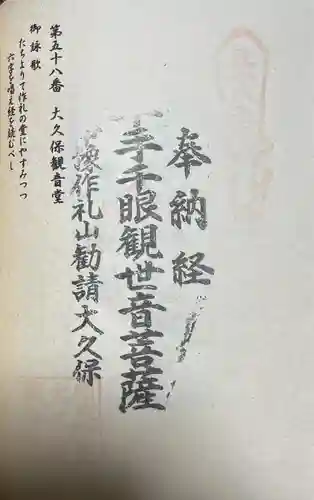 奉納経
手千眼観世音菩薩
操作礼山勧請大久保
第五十八番 大久保観音堂
御詠歌
たちよりて作礼の堂にやすみつつ
六字を唱え経を読むべし